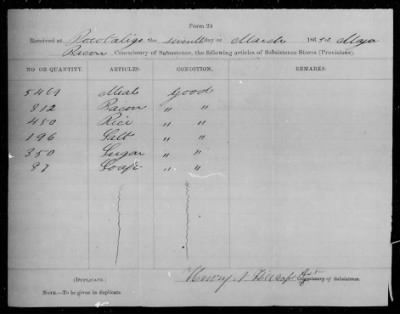 Form 24
Received at Pocotaligo the seventh day of March 1862 Major
Bacon, Commissary of Subsistence, the following articles of Subsistence Stores (Provisions).
NO OR QUANTITY. ARTICLES. CONDITION. REMARKS.
5461 Meal Good
812 Bacon " "
450 Rice " "
196 Salt " "
350 Sugar " "
87 Soap " "
Henry Commissary of Subsistence.
(DUPLICATE.)
NOTE.—To be given in duplicate.